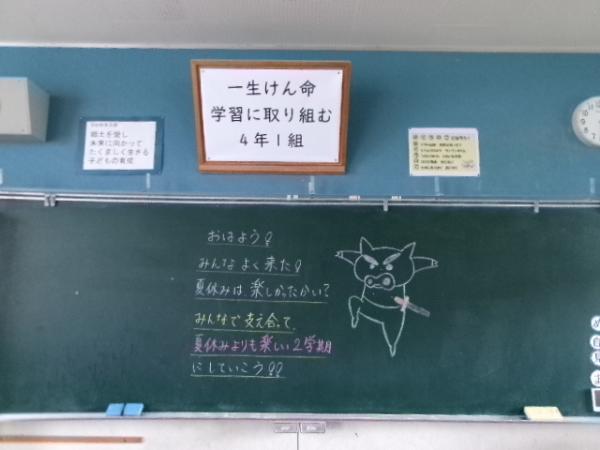 一生けん命
学習に取り組む
4年1組
郷土を愛し
未来に向かって
たくましく生きる
子どもの育成
おはよう!
みんなよく来た!
夏休みは、楽しかったかい?
みんなで支え合って、
夏休みよりも楽しい2学期
にしていこう!!
め
自